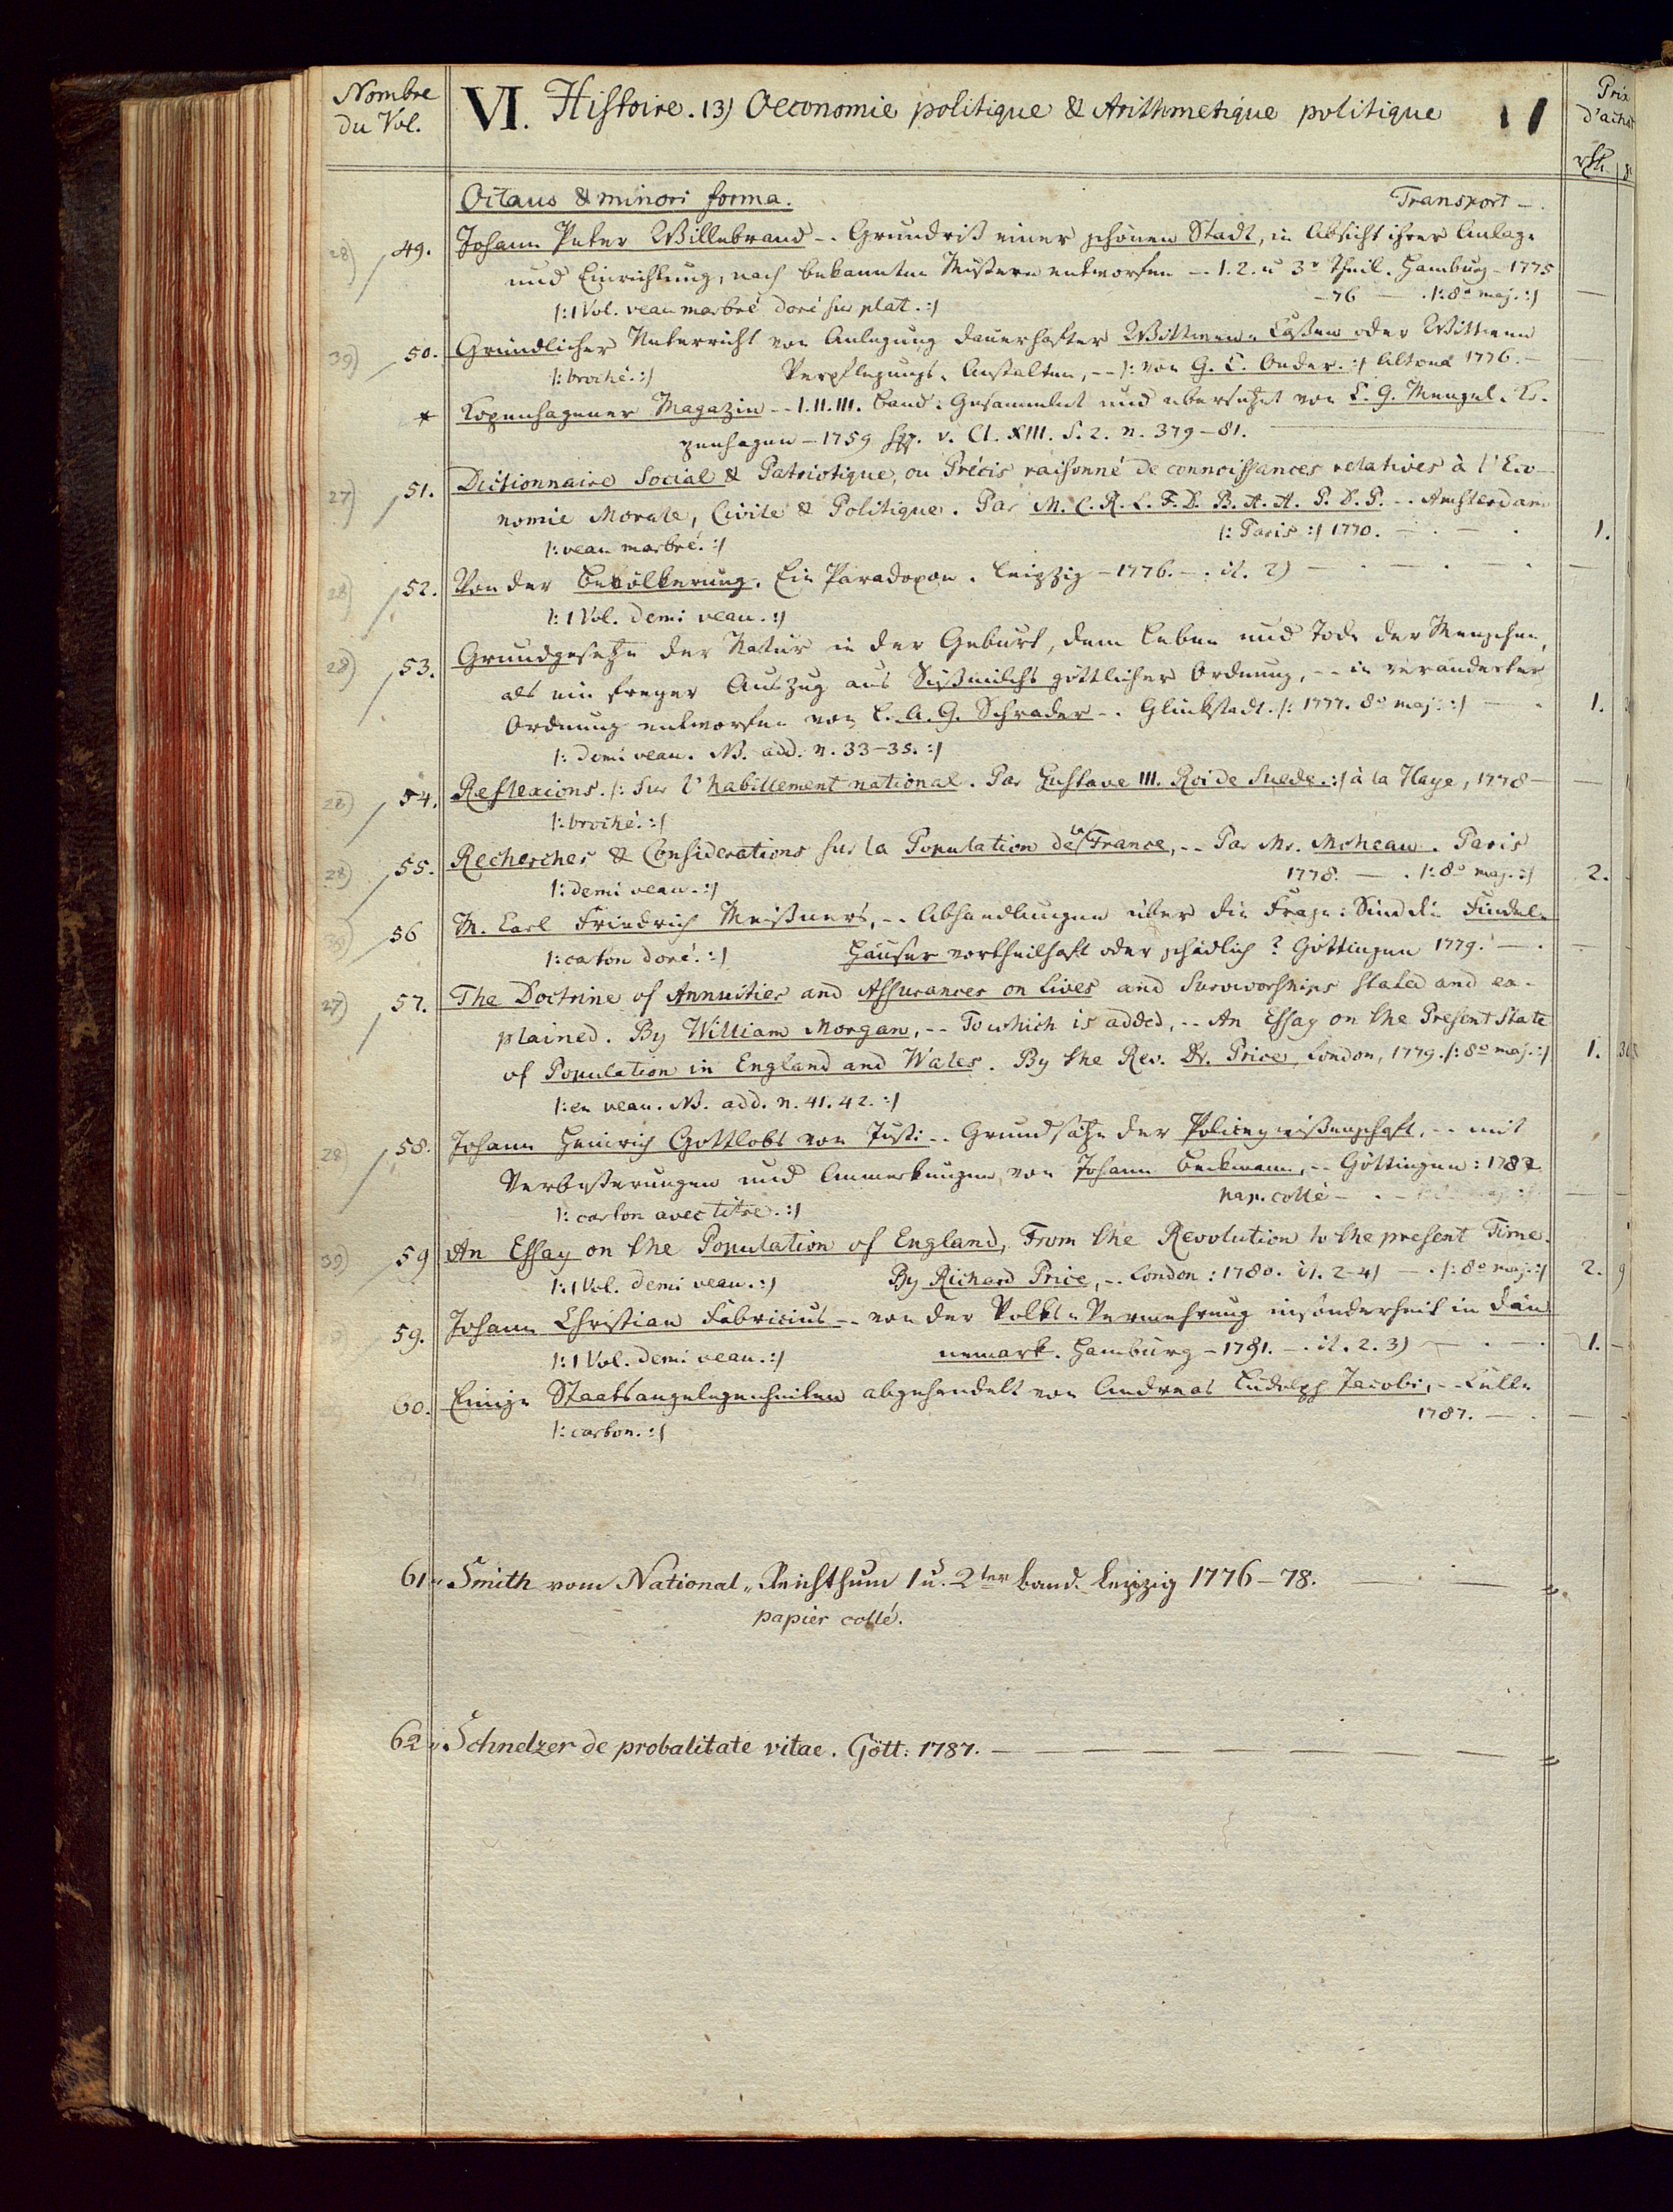 Nombre
du Vol.
VI. Histoire. 13) Oeconomie politique & Arithmetique politique
Prix
d'achat
rth.
Octavo & minori forma. Transport –
28) 49. Johann Peter Willebrand -- Grundriß einer schönen Stadt, in Absicht ihrer Anlage
und Einrichtung, nach bekannten Mustern entworfen -- 1. 2. u 3r Theil. Hamburg – 1775
– 76 — . /: 8o maj. :/
/: 1 Vol. veau marbré doré sur plat. :/
39) 50. Gründlicher Unterricht von Anlegung dauerhafter Wittwen-Caßen oder Wittwen
/: broché. :/ Verpflegungs-Anstalten, -- /: von G. C. Oeder. :/ Altona 1776. –
* Kopenhagener Magazin -- I. II. III. Band. Gesammlet und übersetzt von C. G. Mengel. Ko-
penhagen – 1759 sqq. v. Cl. XIII. S. 2. n. 379–81.
27) 51. Dictionnaire Social & Patriotique, ou Précis raisonné de connoissances relatives à l'Eco-
nomie Morale, Civile & Politique. Par M. C. R. L. F. D. B. A. A. P. D. P. -- Amsterdam
/: Paris :/ 1770. — . — . 1.
/: veau marbré. :/
28) 52. Von der Bevölkerung. Ein Paradoxon. Leipzig – 1776. – . it. 2)
/: 1 Vol. demi veau. :/
28) 53. Grundgesetze der Natur in der Geburt, dem Leben und Tode der Menschen,
als ein freyer Auszug aus Süßmilchs göttlicher Ordnung, -- in veränderter
Ordnung entworfen von C. A. G. Schrader -- Glückstadt. /: 1777. 8o maj. :/ — . 1.
/: demi veau. NB. add. n. 33–35. :/
28) 54. Reflexions. /: Sur l'habillement national. Par Gustave III. Roi de Suede. :/ à la Haye, 1778 –
/: broché. :/
28) 55. Recherches & Considerations sur la Population de la France, -- Par Mr. Moheau. Paris
1778. — . /: 8o maj. :/ 2.
/: demi veau. :/
39) 56 M. Carl Friedrich Meißners, -- Abhandlungen über die Frage: Sind die Findel-
/: carton doré. :/ Häuser vortheilhaft oder schädlich? Göttingen 1779. — .
27) 57. The Doctrine of Annuities and Assurances on Lives and Survivorships stated and ex-
plained. By William Morgan, -- To which is added, -- An Essay on the Present State
of Population in England and Wales. By the Rev. Dr. Price, London, 1779. /: 8o maj. :/ 1.
/: en veau. NB. add. n. 41. 42. :/
28) 58. Johann Heinrich Gottlobs von Justi -- Grundsätze der Policeywißenschaft, -- mit
Verbeßerungen und Anmerkungen, von Johann Beckmann, -- Göttingen: 1782
pap. collé –
/: carton avec titre. :/
39) 59 An Essay on the Population of England, From the Revolution to the present Time.
/: 1 Vol. demi veau. :/ By Richard Price, -- London: 1780. it. 2–4) — . /: 8o maj. :/ 2. 9
59. Johann Christian Fabricius -- von der Volks-Vermehrung insonderheit in Dän
/: 1 Vol. demi veau. :/ nemark. Hamburg – 1781. – . it. 2. 3) 1. –
60. Einige Staatsangelegenheiten abgehandelt von Andreas Ludolph Jacobi, -- Celle
1787. — .
/: carton. :/
61 Smith vom National-Reichthum 1 u. 2ter band. Leipzig 1776–78.
papier collé.
62 Schnelzer de probalitate vitae. Gött: 1787.